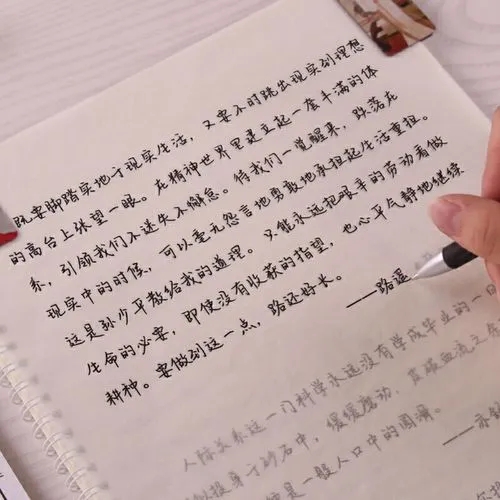 既要脚踏实地于现实生活，又要不时跳出现实到理想
的高台上张望一眼。在精神世界里建立起一套丰满的体
系，引领我们不迷失不懈怠。待我们一觉醒来，跌落在
现实中的时候，可以毫无怨言地勇敢地承担起生活重担。
这是孙少平教给我的道理。只能永远把艰辛的劳动看做
生命的必要，即使没有收获的指望，也心平气静地继续
耕种。要做到这一点，路还好长。
——路遥
人际关系这一门科学永远没有学成毕业的一日
似投身于砂石中，缓缓磨动，皮破血流之
是一般人口中的圆滑。
——亦